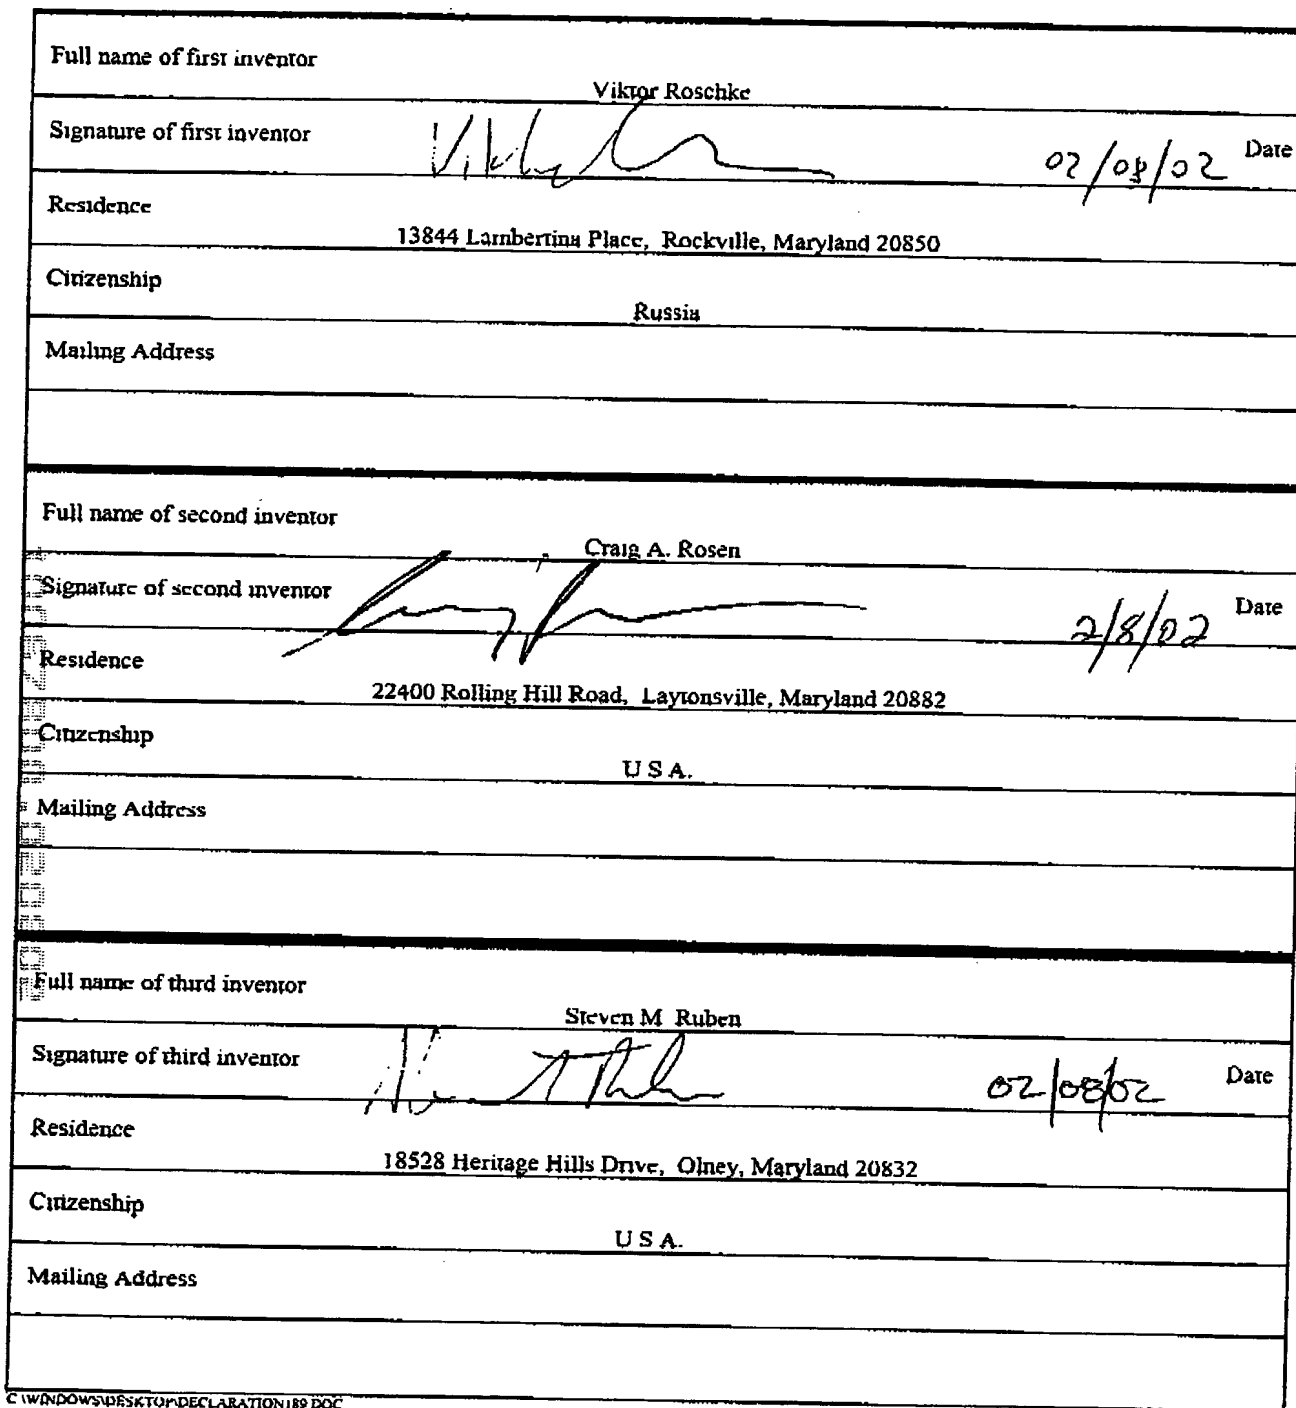 Full name of first inventor
Viktor Roschke
Signature of first inventor 02/08/02 Date
Residence
13844 Lambertina Place, Rockville, Maryland 20850
Citizenship
Russia
Mailing Address
Full name of second inventor
Craig A. Rosen
Signature of second inventor 2/8/02 Date
Residence
22400 Rolling Hill Road, Laytonsville, Maryland 20882
Citizenship
U S A.
Mailing Address
Full name of third inventor
Steven M Ruben
Signature of third inventor 02/08/02 Date
Residence
18528 Heritage Hills Drive, Olney, Maryland 20832
Citizenship
U S A.
Mailing Address
C \WINDOWS\DESKTOP\DECLARATION189 DOC